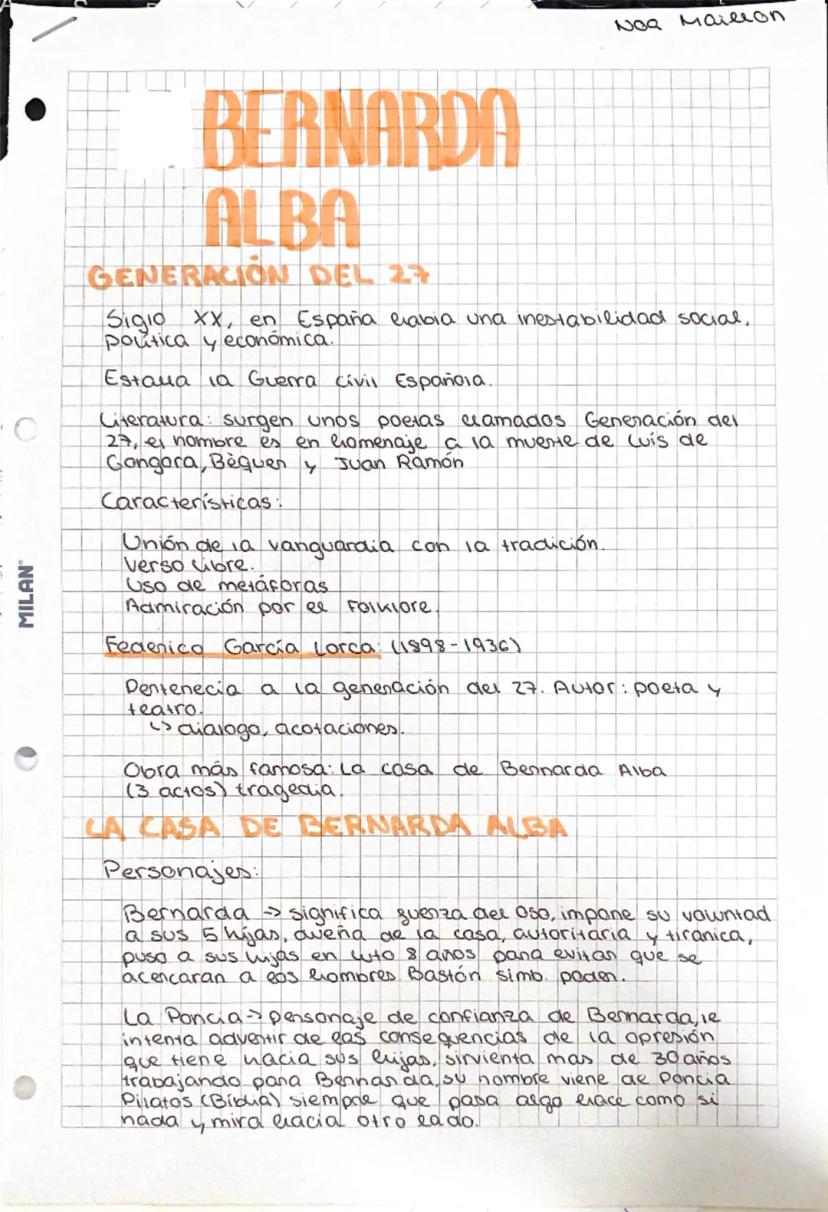 Noa Maillon
BERNARDA
ALBA
GENERACIÓN DEL 27
Siglo XX, en España había una inestabilidad social,
política y económica.
Estalla la Guerra civil Española.
Literatura: surgen unos poetas llamados Generación del
27, el nombre es en homenaje a la muerte de Luis de
Gongora, Bèquer y Juan Ramón
Características:
Unión de la vanguardia con la tradición.
Verso libre.
Uso de metáforas
Admiración por el Folklore.
Federico García Lorca: (1898-1936)
Pertenecía a la generación del 27. Autor: poeta y
teatro.
↳ dialogo, acotaciones.
Obra más famosa: La casa de Bernarda Alba
(3 actos) tragedia.
LA CASA DE BERNARDA ALBA
Personajes:
Bernarda -> significa guerza del Oso, impone su voluntad
a sus 5 hijas, dueña de la casa, autoritaria y tiranica,
puso a sus hijas en luto 8 años para evitar que se
acercaran a los hombres. Bastón simb. poder.
La Poncia -> personaje de confianza de Bernarda, le
intenta advertir de las consequencias de la opresión
que tiene hacia sus hijas, sirvienta mas de 30 años
trabajando para Bernarda, su nombre viene de Poncia
Pilatos (Biblia) siempre que pasa algo hace como si
nada y mira hacia otro lado.
MILAN